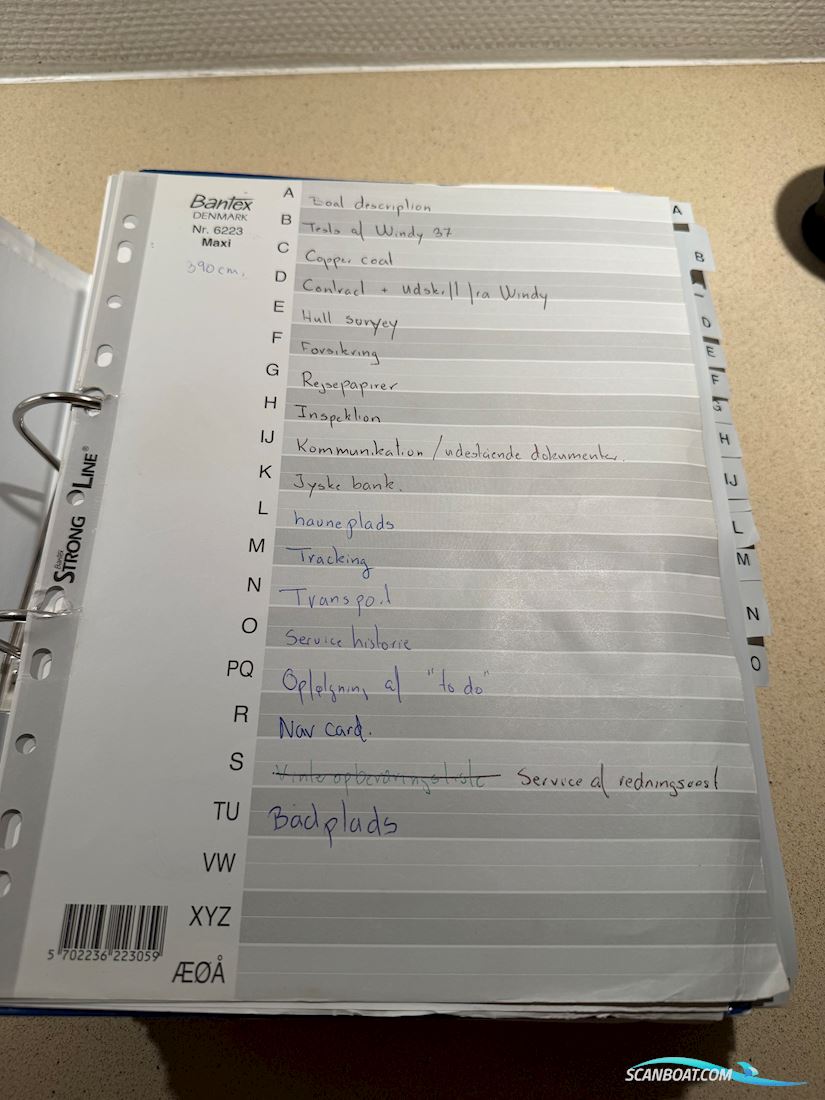 Bantex
DENMARK
Nr. 6223
Maxi
390 cm.
A Boat description
B Tests af Windy 37
C Copper coat
D Contract + udskift fra Windy
E Hull survey
F Forsikring
G Rejsepapirer
H Inspektion
IJ Kommunikation / udestående dokumenter.
K Jyske bank.
L havneplads
M Tracking
N Transport
O Service historie
PQ Opfølgning af "to do"
R Nav card.
S Vinteropbevaringsliste Service af redningsvest
TU Bådplads
VW
XYZ
ÆØÅ
Bantex STRONG LINE®
5 702236 223059
A
B
D
E
F
G
H
IJ
L
M
N
O
SCANBOAT.COM